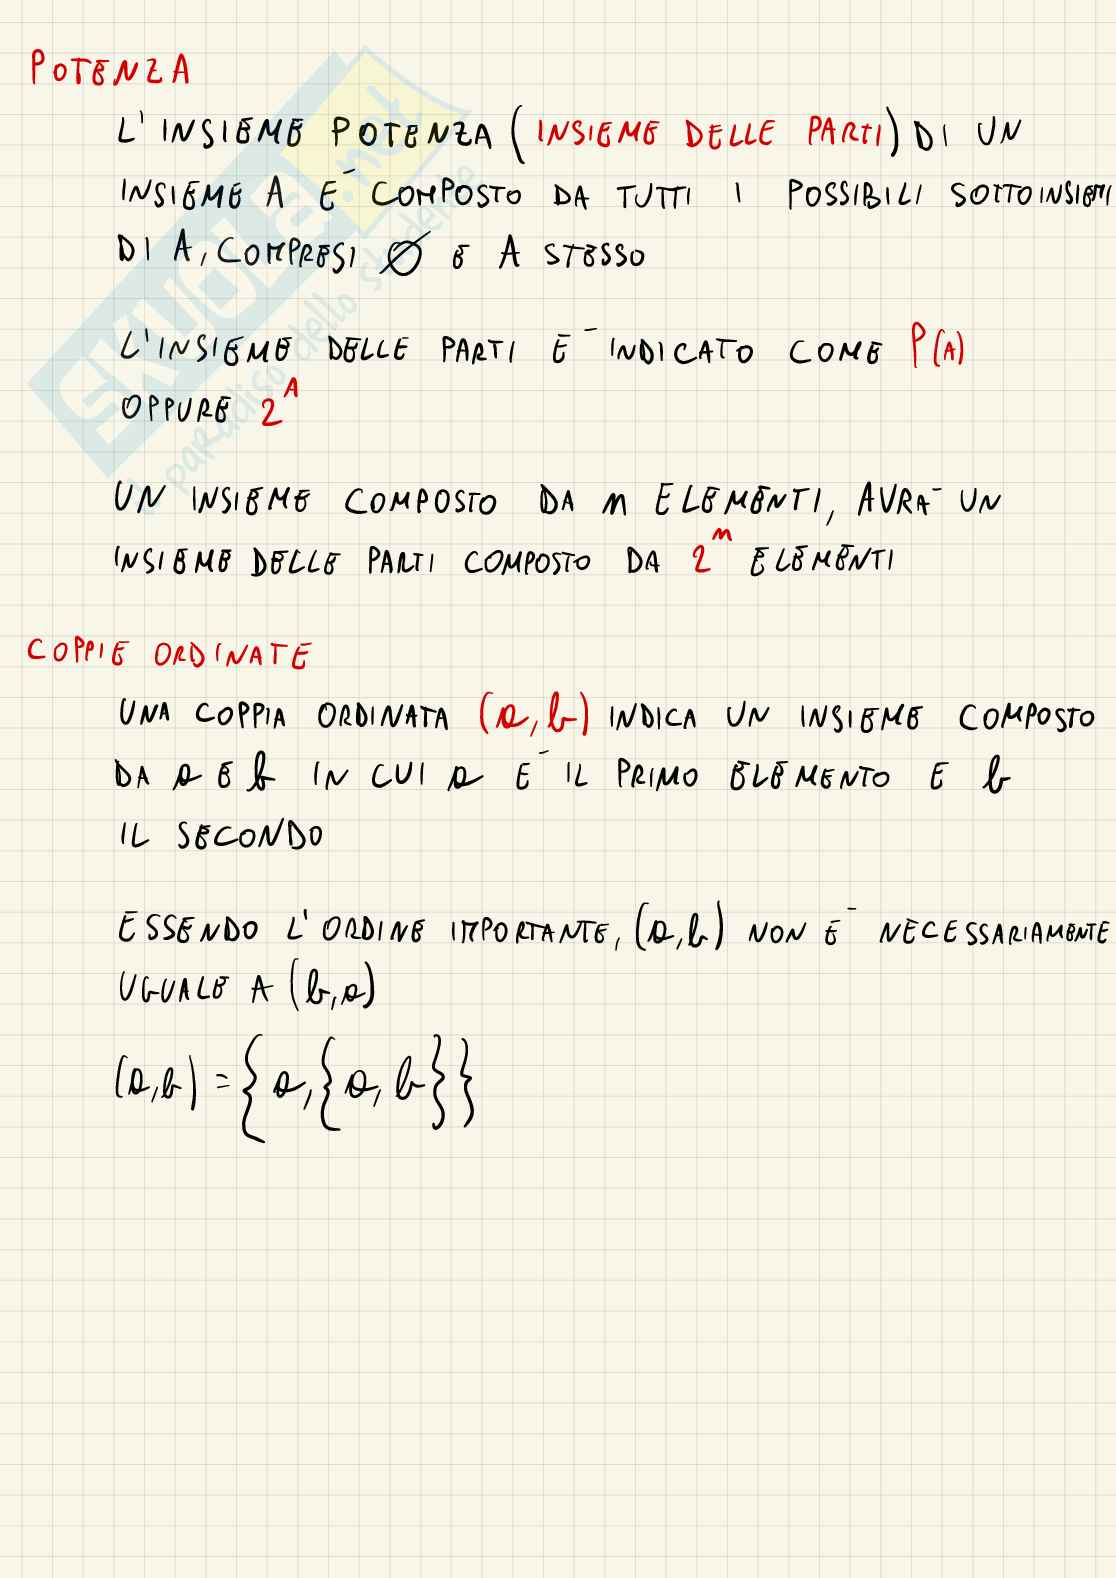 POTENZA
L'INSIEME POTENZA (INSIEME DELLE PARTI) DI UN
INSIEME A È COMPOSTO DA TUTTI I POSSIBILI SOTTOINSIEMI
DI A, COMPRESI ∅ E A STESSO
L'INSIEME DELLE PARTI È INDICATO COME P(A)
OPPURE 2^A
UN INSIEME COMPOSTO DA n ELEMENTI, AVRÀ UN
INSIEME DELLE PARTI COMPOSTO DA 2^n ELEMENTI
COPPIE ORDINATE
UNA COPPIA ORDINATA (a,b) INDICA UN INSIEME COMPOSTO
DA a E b IN CUI a È IL PRIMO ELEMENTO E b
IL SECONDO
ESSENDO L'ORDINE IMPORTANTE, (a,b) NON È NECESSARIAMENTE
UGUALE A (b,a)
(a,b) = {a,{a,b}}
SKUOLA.net
il paradiso dello studente